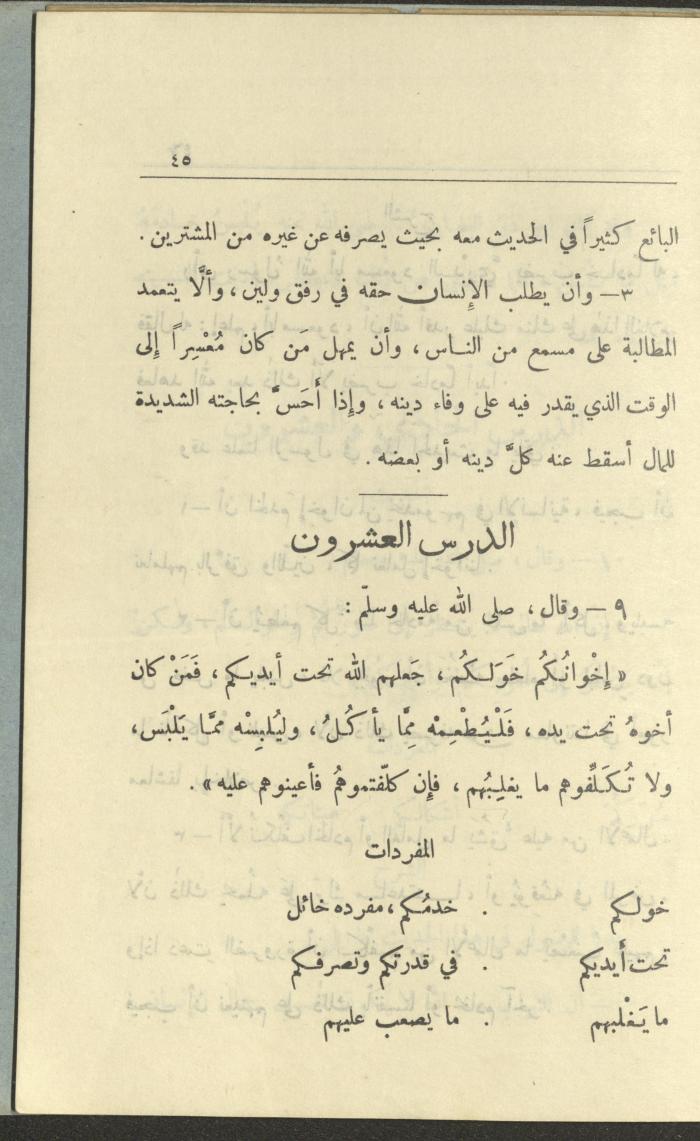 ٤٥
البائع كثيراً في الحديث معه بحيث يصرفه عن غيره من المشترين .
٣ — وأن يطلب الإنسان حقه في رفق ولين ، وألَّا يتعمد
المطالبة على مسمع من الناس ، وأن يمهل مَن كان مُعْسِراً إلى
الوقت الذي يقدر فيه على وفاء دينه ، وإذا أَحَسَّ بحاجته الشديدة
للمال أسقط عنه كلَّ دينه أو بعضه .
الدرس العشرون
٩ — وقال ، صلى الله عليه وسلّم :
« إِخْوانُكُم خَوَلكُم ، جَعلهم الله تحت أيديكم ، فَمَنْ كان
أخوهُ تحت يده ، فَلْيُطْعِمْه مِمَّا يأكُلُ ، وليُلبِسْه ممَّا يَلْبَس ،
ولا تُكَلِّفوهم ما يغلِبُهم ، فإن كلّفتموهُم فأعينوهم عليه » .
المفردات
خولكم . خدمُكم ، مفرده خائل
تحت أيديكم . في قدرتكم وتصرفكم
ما يَغْلبهم . ما يصعب عليهم